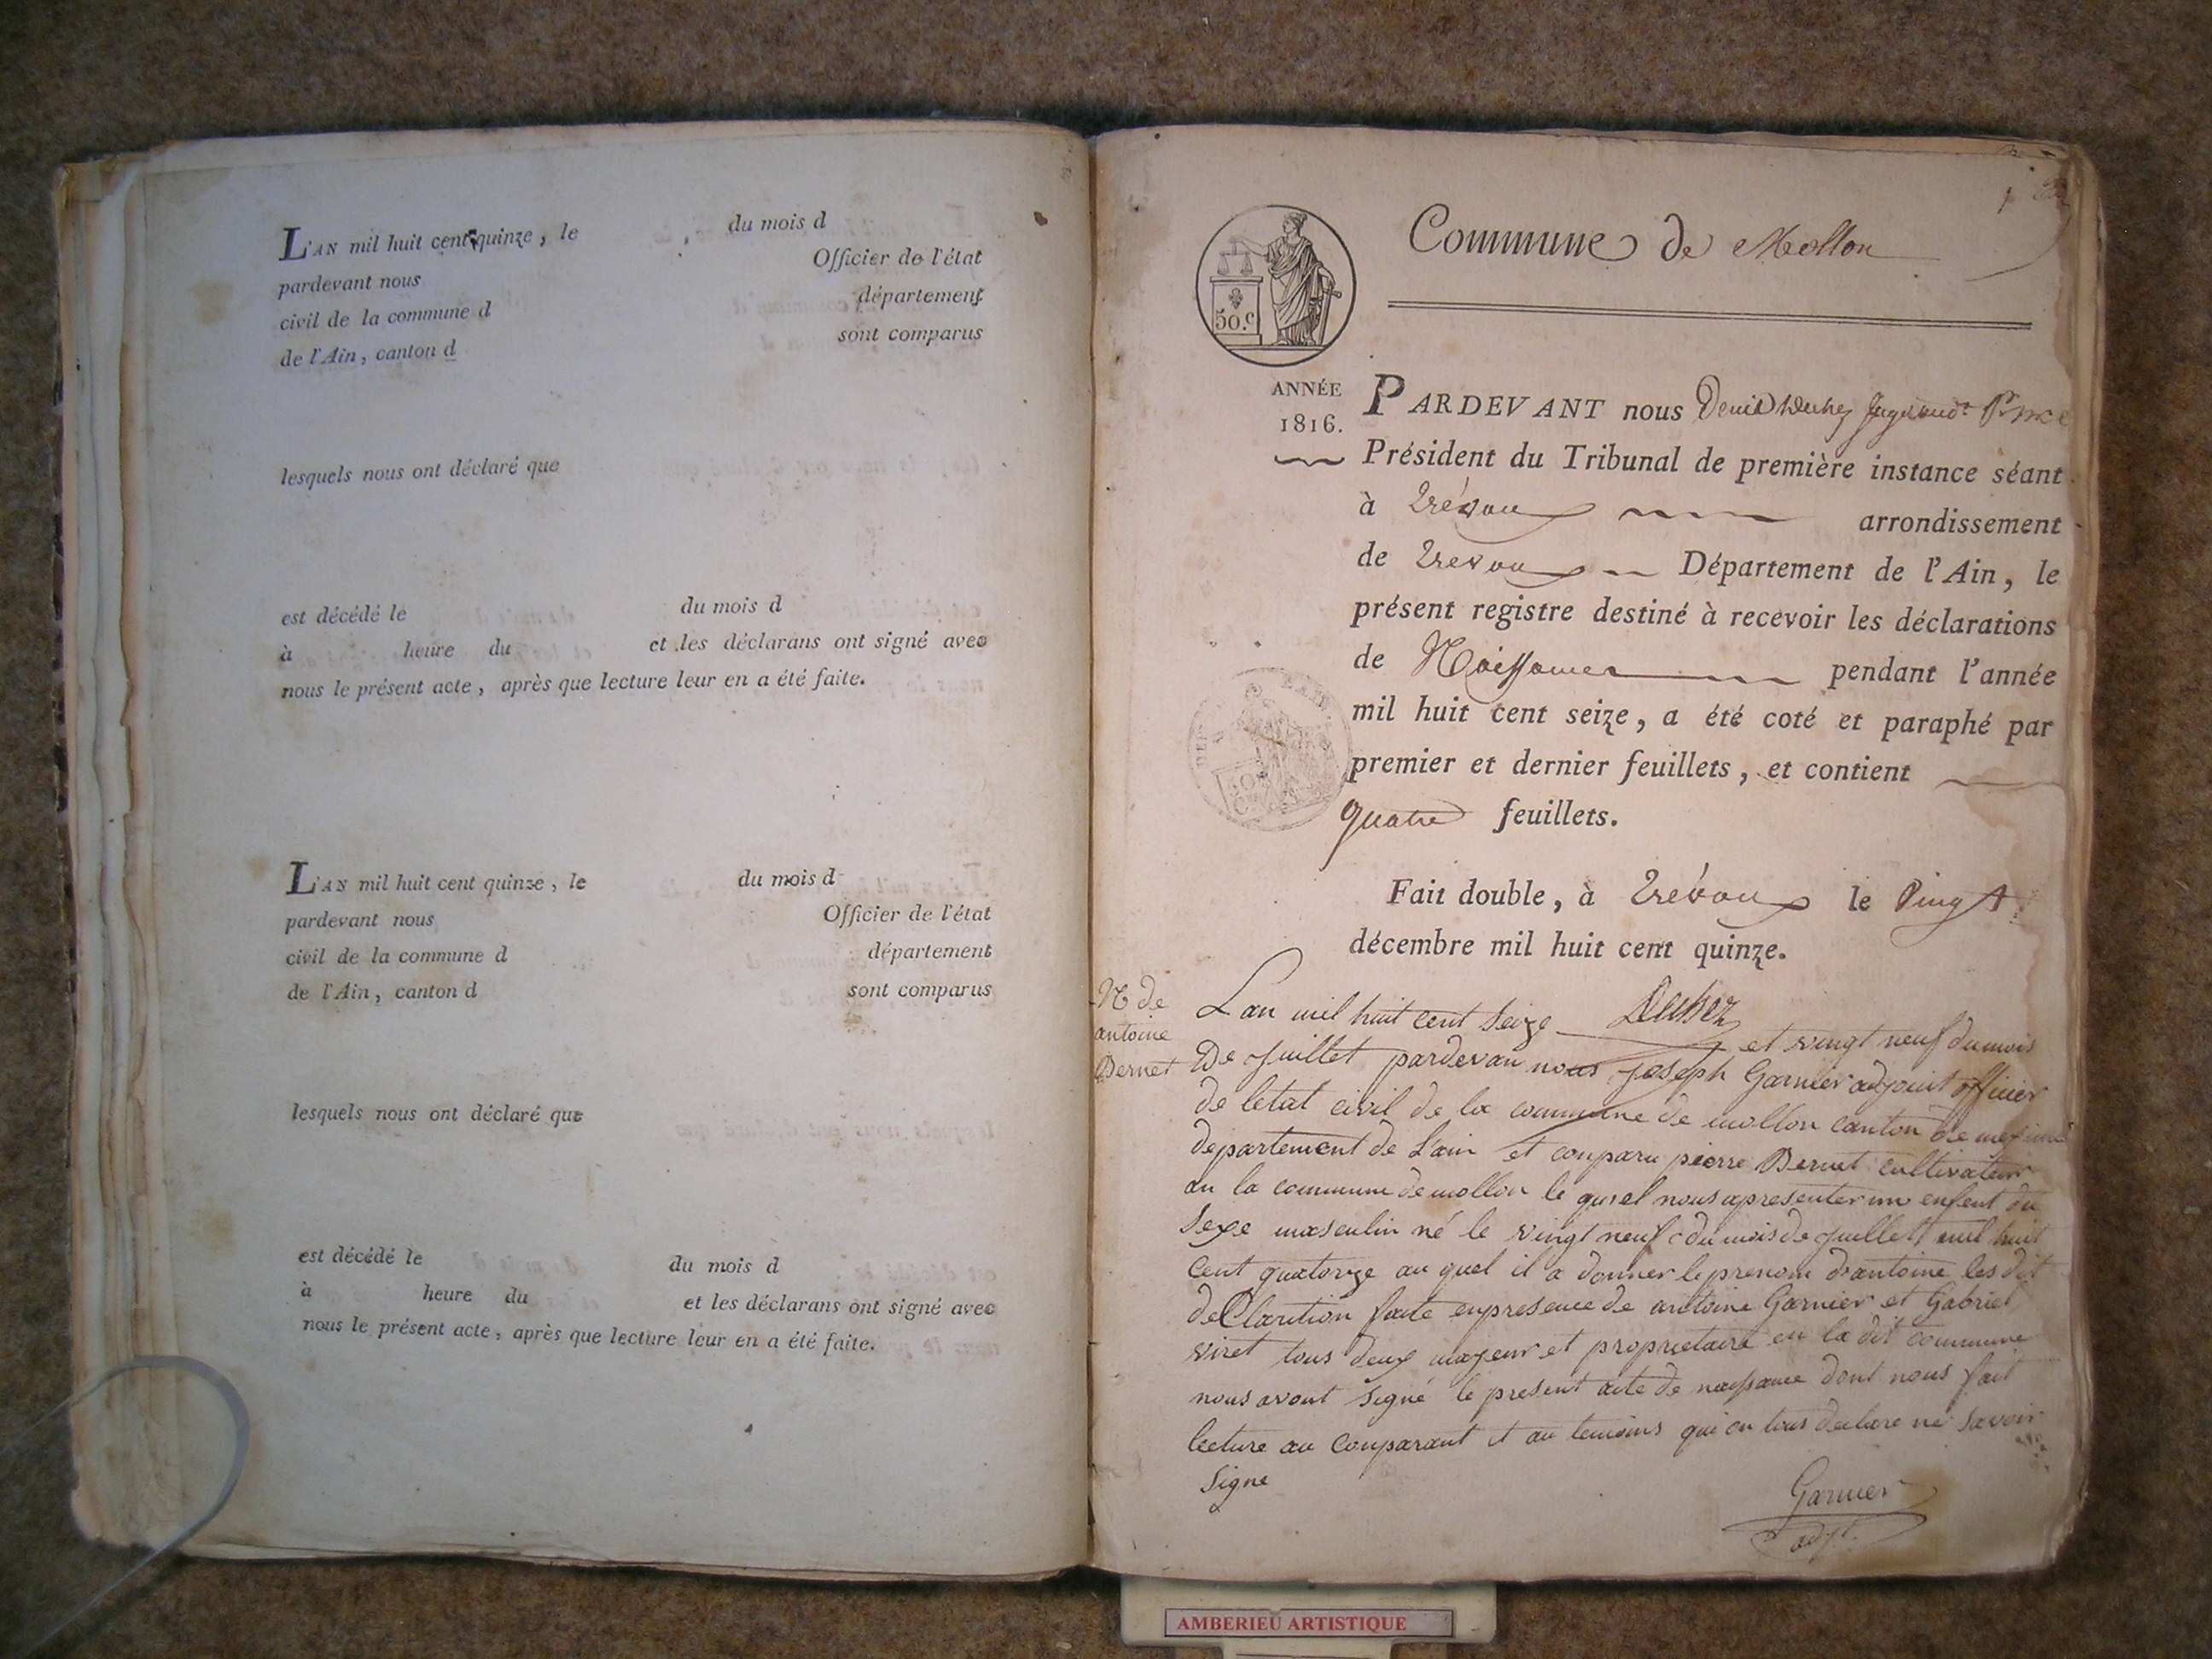 L'AN mil huit cent quinze, le du mois d
pardevant nous Officier de l'état
civil de la commune d département
de l'Ain, canton d sont comparus
lesquels nous ont déclaré que
est décédé le du mois d
à heure du et les déclarans ont signé avec
nous le présent acte, après que lecture leur en a été faite.
L'AN mil huit cent quinze, le du mois d
pardevant nous Officier de l'état
civil de la commune d département
de l'Ain, canton d sont comparus
lesquels nous ont déclaré que
est décédé le du mois d
à heure du et les déclarans ont signé avec
nous le présent acte, après que lecture leur en a été faite.
Commune de Mollon
50.c
ANNÉE
1816.
PARDEVANT nous
Président du Tribunal de première instance séant
à Trévoux arrondissement
de Trevoux Département de l'Ain, le
présent registre destiné à recevoir les déclarations
de Naissances pendant l'année
mil huit cent seize, a été coté et paraphé par
premier et dernier feuillets, et contient
quatre feuillets.
Fait double, à Trévoux le vingt
décembre mil huit cent quinze.
N de
antoine
Bernet
Lan mil huit cent seize et vingt neuf du mois
De juillet pardevan nous joseph Garnier adjoint officier
de letat civil de la commune de mollon canton de meximie
departement de L'ain et conparu pierre Bernet cultivateur
en la commune de mollon le quel nous apresenter un enfent du
Sexe masculin né le vingt neuf du mois de juillett mil huit
Cent quatorze au quel il a donner le prenom d'antoine les dit
deClarition faite enpresence de antoine Garnier et Gabriel
viret tous deux majeur et proprietaire en la dit commune
nous avont signé le present acte de naissance dont nous fait
lecture au Conparant et au temoins qui on tous declare ne savoir
Signe
Garnier
adjt.
AMBERIEU ARTISTIQUE